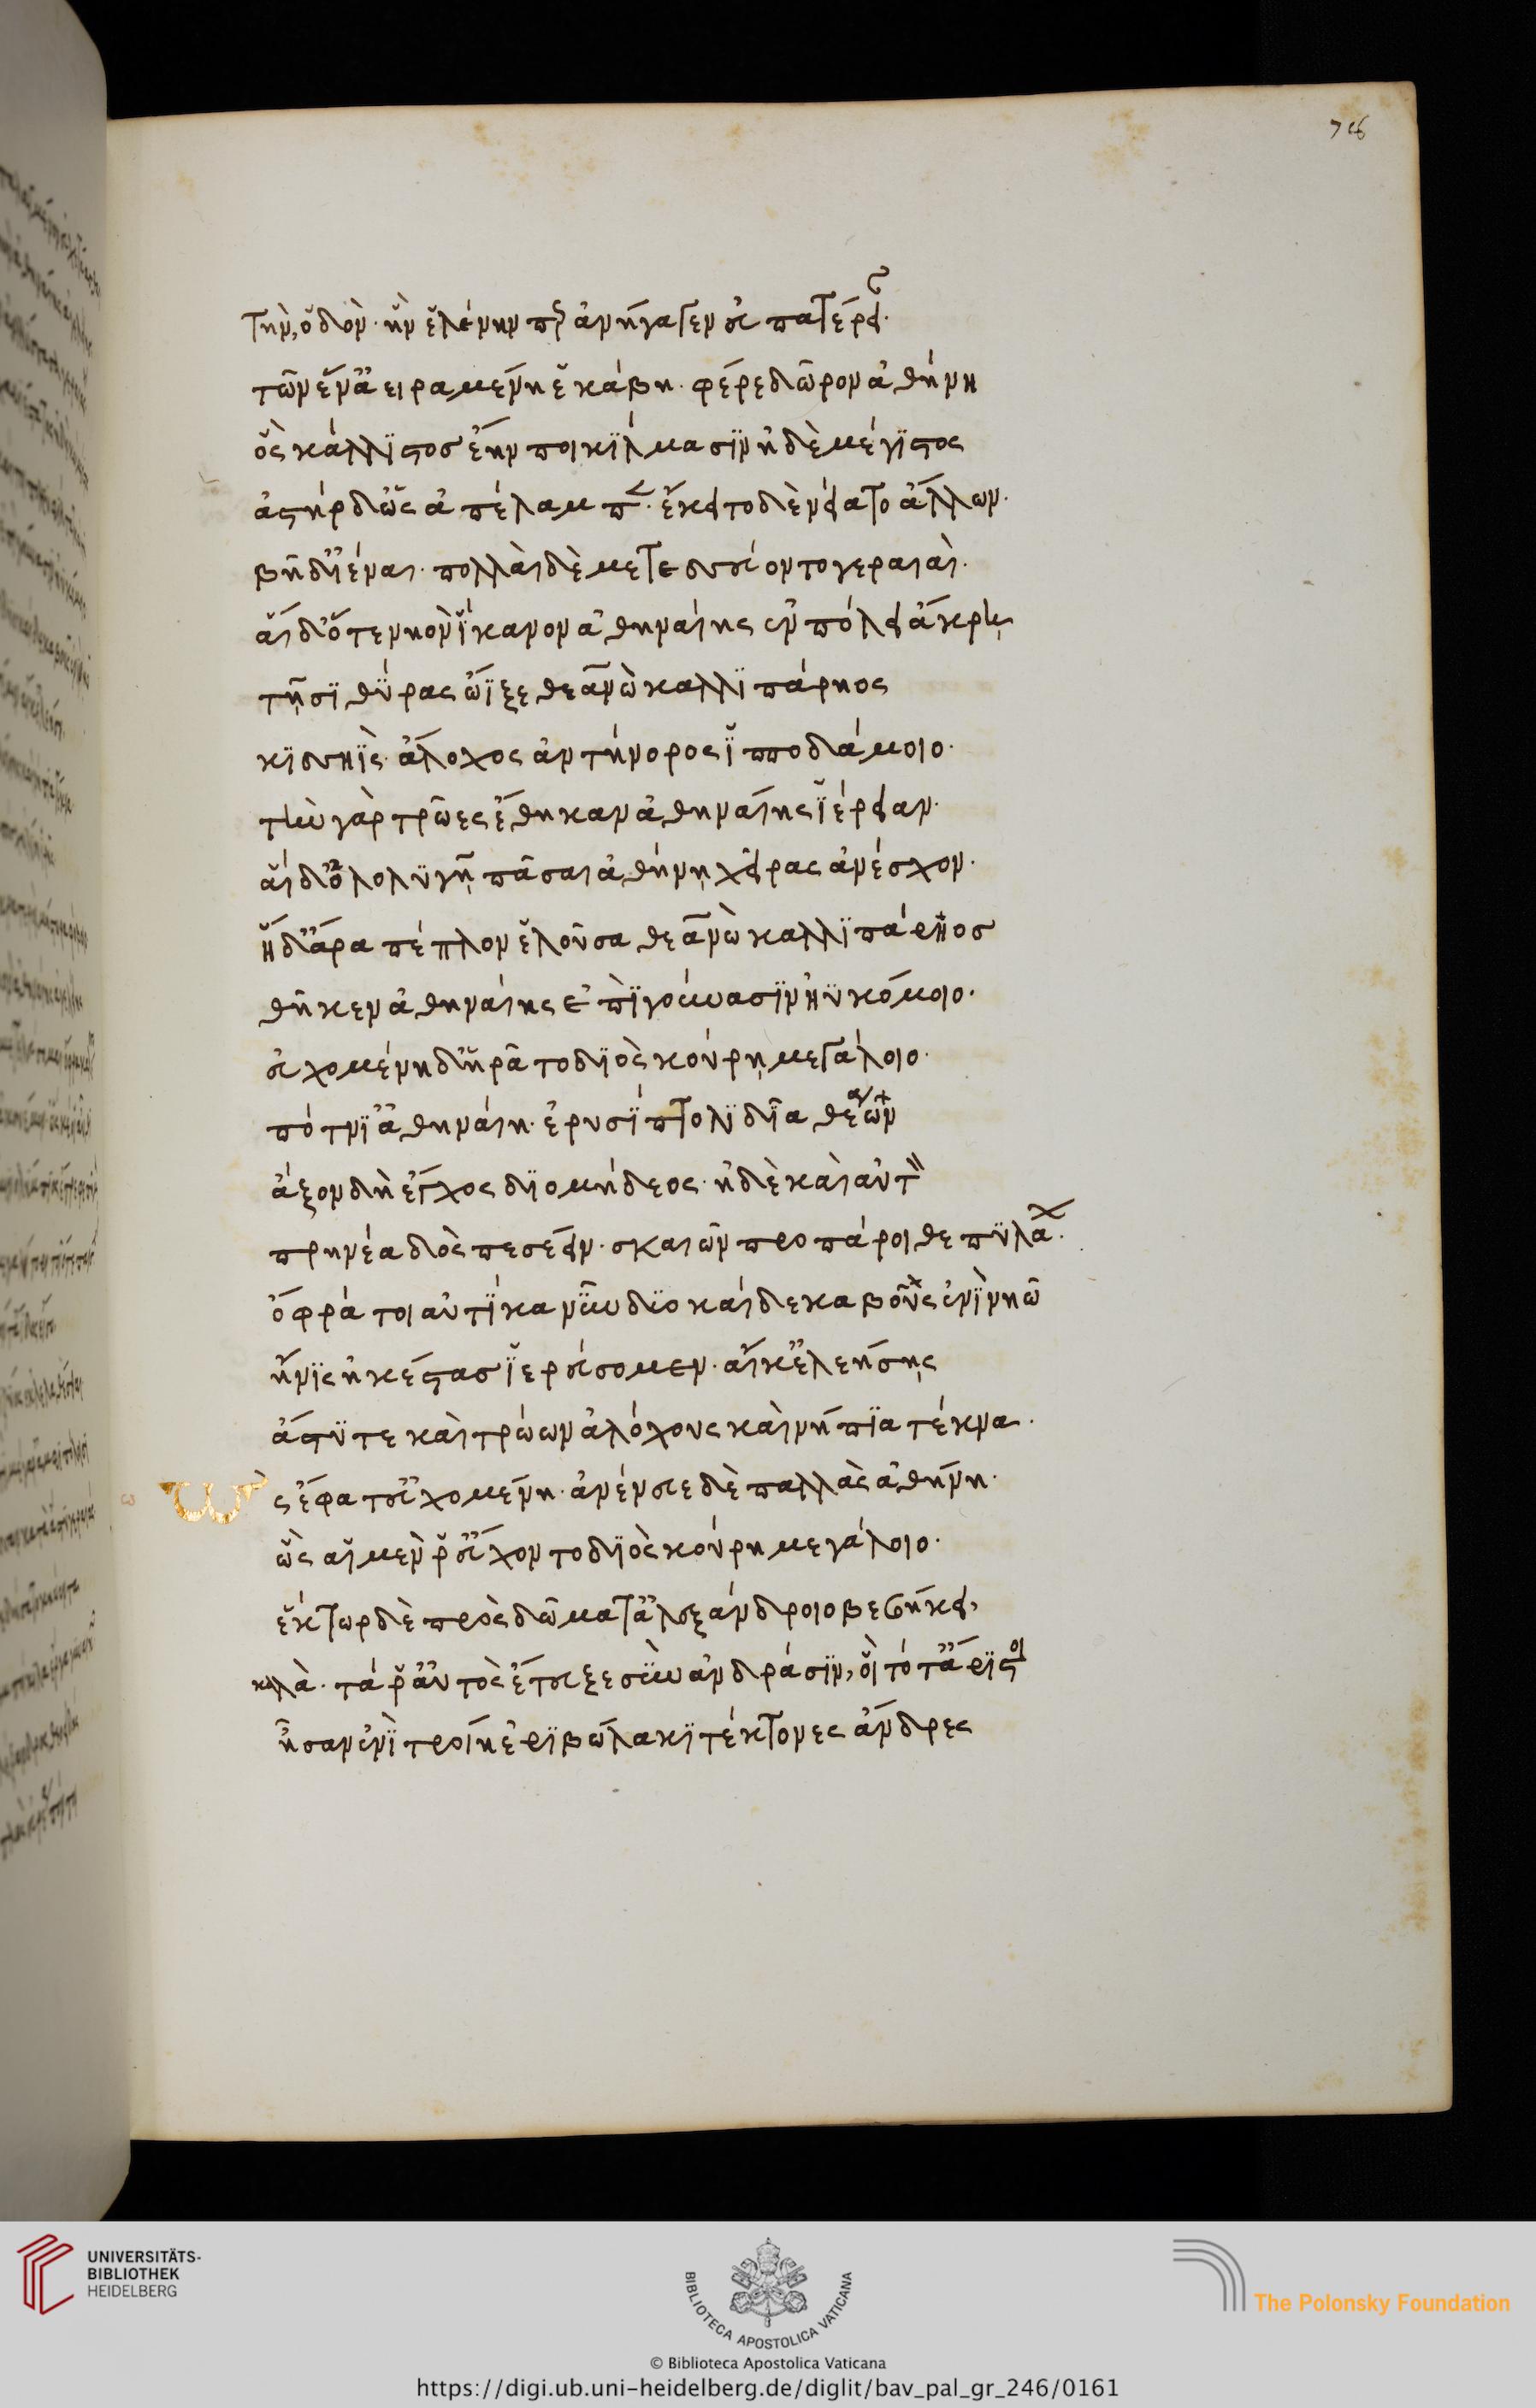 76
τὴν, ὁδὸν· ἣν ἑλένην περ ἀνήγαγεν εὐπατέρειαν·
τῶν ἕν᾽ ἀειραμένη ἑκάβη· φέρε δῶρον ἀθήνη
ὃς κάλλιστος ἔην ποικίλμασιν ἠδὲ μέγιστος
ἀστὴρ δ᾽ ὣς ἀπέλαμπεν· ἔκειτο δὲ νείατο ἄλλων·
βῆ δ᾽ ἰέναι· πολλαὶ δὲ μετεσσεύοντο γεραιαὶ·
αἵ δ᾽ ὅτε νηὸν ἵκανον ἀθηναίης ἐν πόλει ἄκρῃ
τῇσι θύρας ὤϊξε θεανὼ καλλιπάρηος
κισσηῒς· ἄλοχος ἀντήνορος ἱπποδάμοιο·
τὴν γὰρ τρῶες ἔθηκαν ἀθηναίης ἱέρειαν·
αἵ δ᾽ ὀλολυγῇ πᾶσαι ἀθήνῃ χεῖρας ἀνέσχον·
ἥ δ᾽ ἄρα πέπλον ἑλοῦσα θεανὼ καλλιπάρηος
θῆκεν ἀθηναίης ἐπὶ γούνασιν ἠϋκόμοιο·
εὐχομένη δ᾽ ἠρᾶτο διὸς κούρῃ μεγάλοιο·
πότνι᾽ ἀθηναίη· ἐρυσίπτολι δῖα θεάων
ἄξον δὴ ἔγχος διομήδεος· ἠδὲ καὶ αὐτὸν
πρηνέα δὸς πεσέειν· σκαιῶν προπάροιθε πυλάων·
ὄφρά τοι αὐτίκα νῦν δυοκαίδεκα βοῦς ἐνὶ νηῶ
ἤνις ἠκέστας ἱερεύσομεν· αἴ κ᾽ ἐλεήσῃς
ἄστύ τε καὶ τρώων ἀλόχους καὶ νήπια τέκνα·
ὣς ἔφατ᾽ εὐχομένη· ἀνένευε δὲ παλλὰς ἀθήνη·
ὣς αἵ μέν ῥ᾽ εὔχοντο διὸς κούρῃ μεγάλοιο·
ἕκτωρ δὲ πρὸς δώματ᾽ ἀλεξάνδροιο βεβήκει,
καλὰ· τά ῥ᾽ αὐτὸς ἔτευξε σὺν ἀνδράσιν, οἳ τότ᾽ ἄριστοι
ἦσαν ἐνὶ τροίῃ ἐριβώλακι τέκτονες ἄνδρες
UNIVERSITÄTS-
BIBLIOTHEK
HEIDELBERG
BIBLIOTECA APOSTOLICA VATICANA
The Polonsky Foundation
© Biblioteca Apostolica Vaticana
https://digi.ub.uni-heidelberg.de/diglit/bav_pal_gr_246/0161